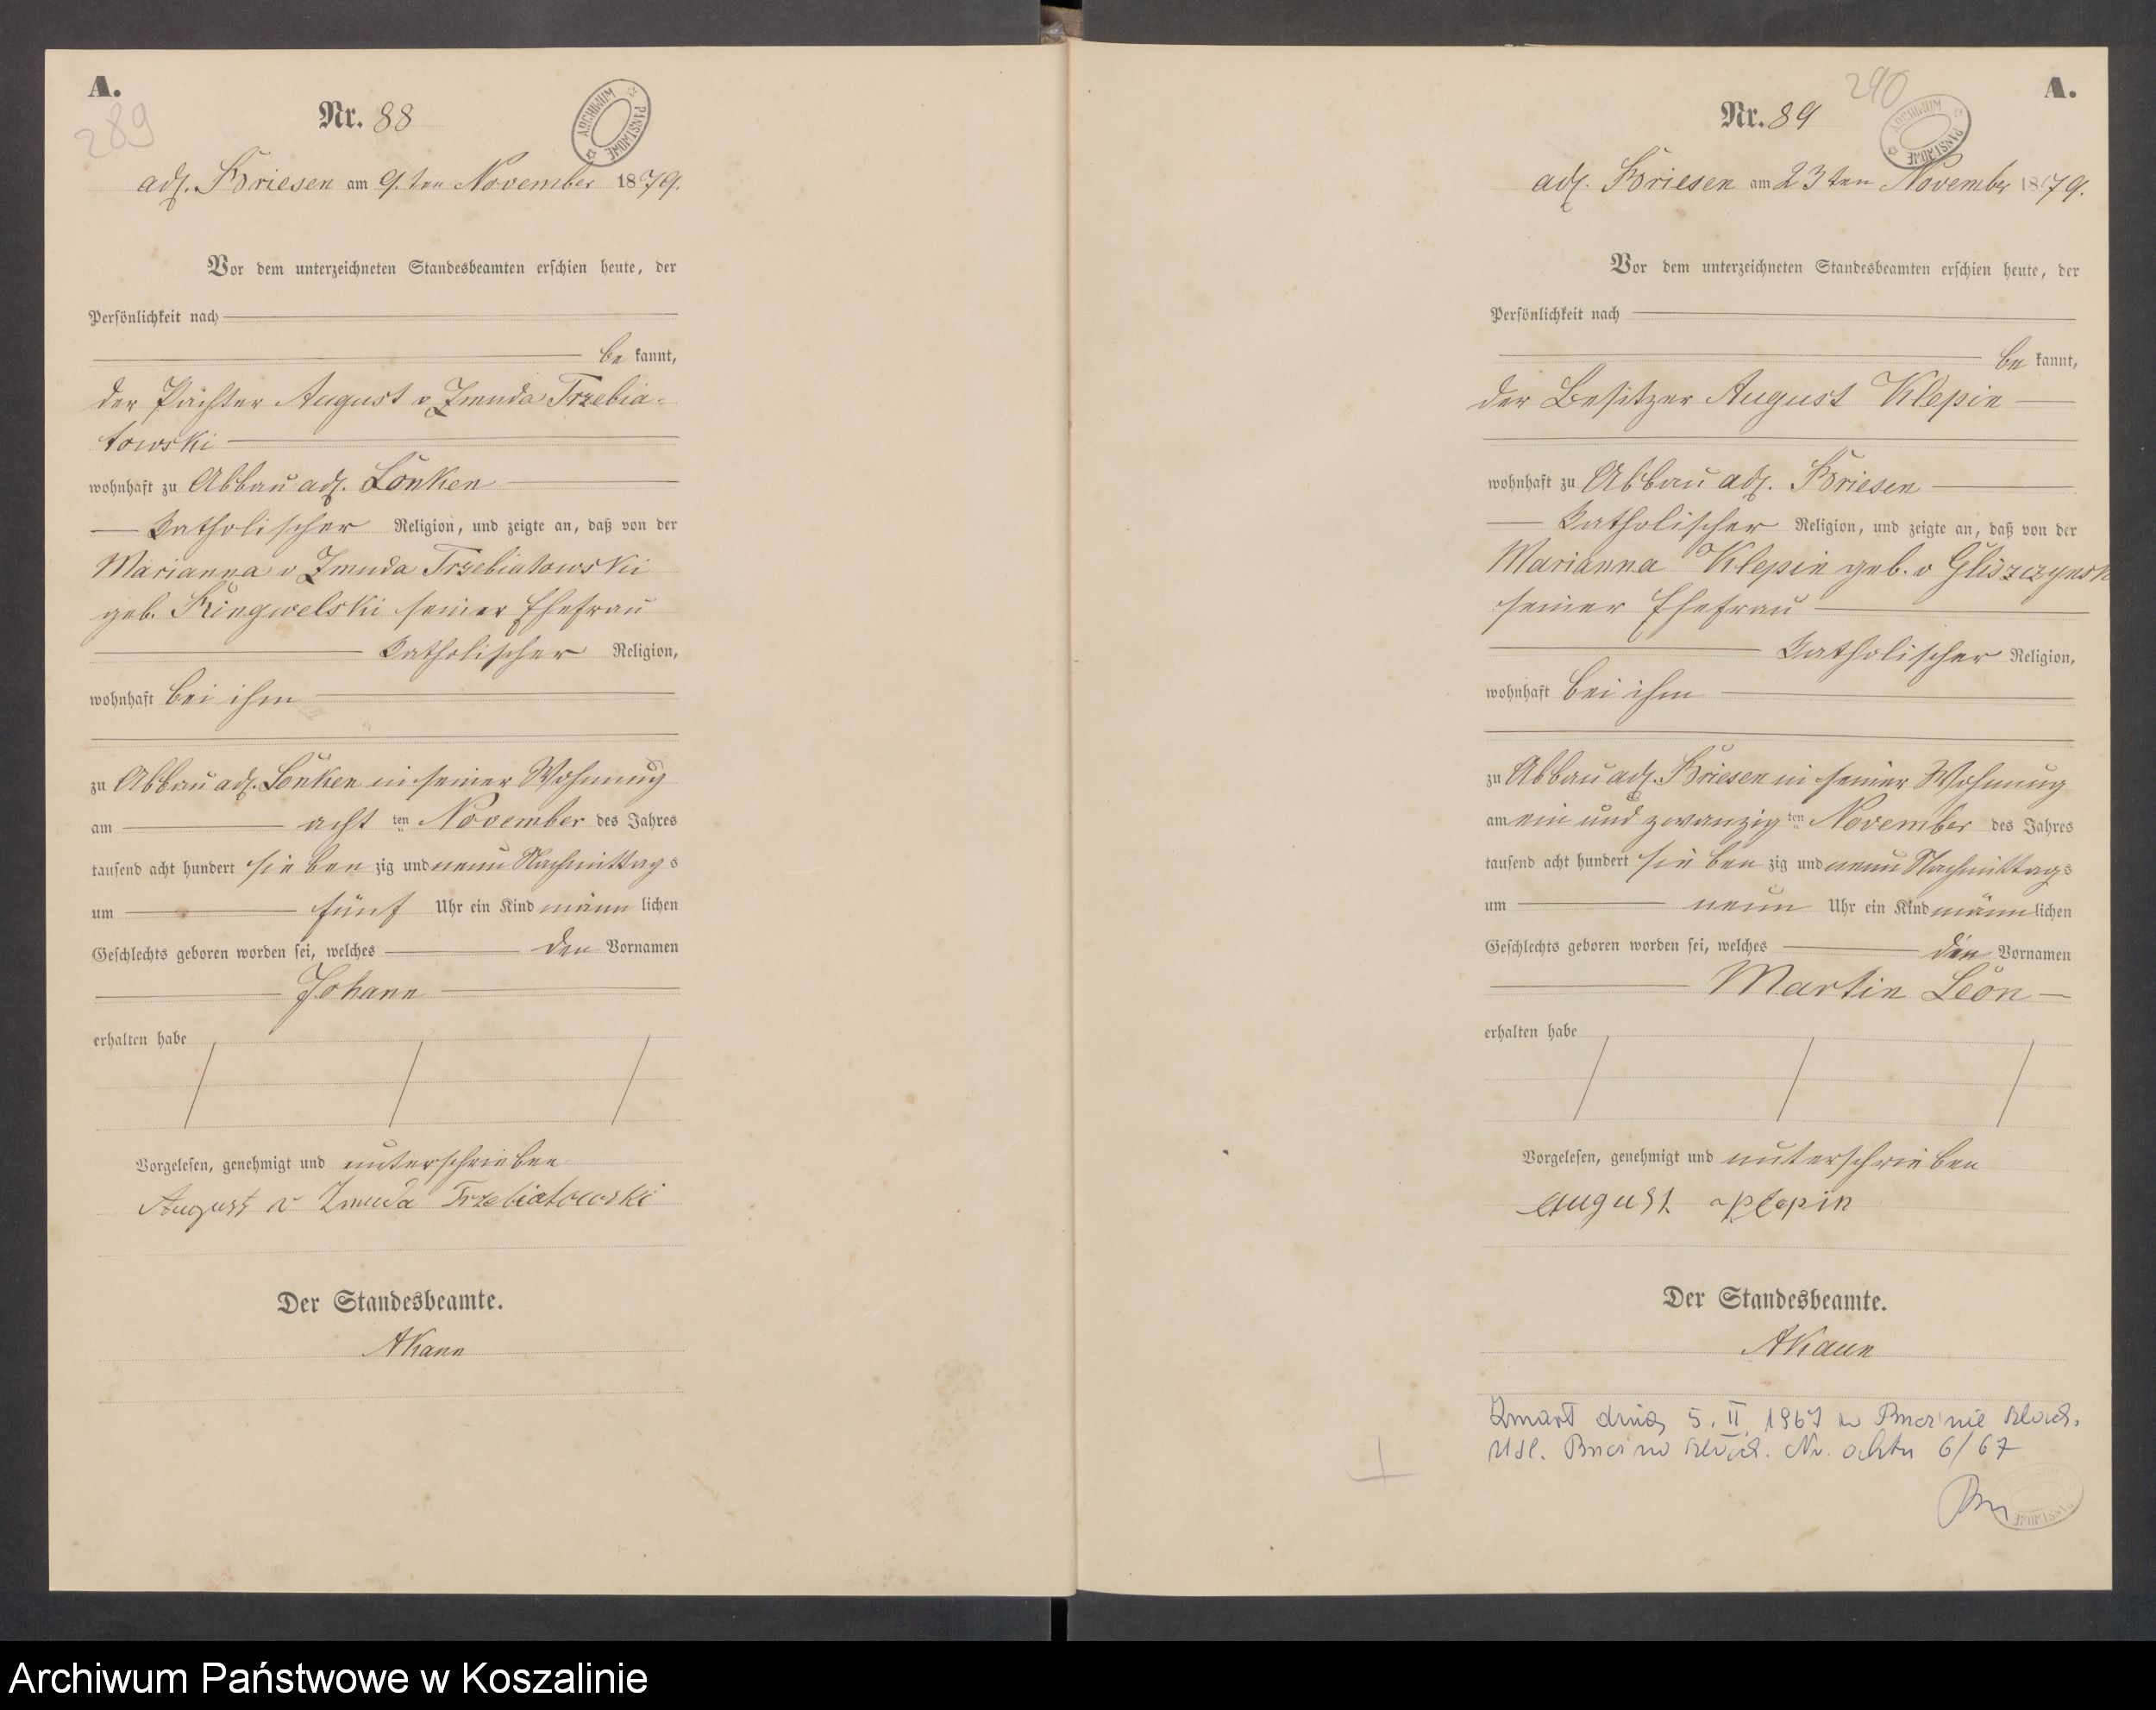 A.
289
Nr. 88
ARCHIWUM PAŃSTWOWE
adl. Briesen am 9. ten November 1879.
Vor dem unterzeichneten Standesbeamten erschien heute, der
Persönlichkeit nach
be kannt,
der Pächter August v Zmuda Trzebia-
towski
wohnhaft zu Abbau adl. Lonken
katholischer Religion, und zeigte an, daß von der
Marianna v Zmuda Trzebiatowski
geb. seiner Ehefrau
katholischer Religion,
wohnhaft bei ihm
zu Abbau adl. Lonken in seiner Wohnung
am acht ten November des Jahres
tausend acht hundert sieben zig und neun Nachmittags
um fünf Uhr ein Kind männ lichen
Geschlechts geboren worden sei, welches den Vornamen
Johann
erhalten habe
Vorgelesen, genehmigt und unterschrieben
August v Zmuda Trzebiatowski
Der Standesbeamte.
AKann
A.
290
Nr. 89
ARCHIWUM PAŃSTWOWE
adl. Briesen am 23 ten November 1879.
Vor dem unterzeichneten Standesbeamten erschien heute, der
Persönlichkeit nach
be kannt,
der Besitzer August Klepin
wohnhaft zu Abbau adl. Briesen
katholischer Religion, und zeigte an, daß von der
Marianna Klepin geb. v Gliszczynsk
seiner Ehefrau
katholischer Religion,
wohnhaft bei ihm
zu Abbau adl. Briesen in seiner Wohnung
am ein und zwanzig ten November des Jahres
tausend acht hundert sieben zig und neun Nachmittags
um neun Uhr ein Kind männ lichen
Geschlechts geboren worden sei, welches den Vornamen
Martin Leon
erhalten habe
Vorgelesen, genehmigt und unterschrieben
August Klepin
Der Standesbeamte.
AKann
Zmarł dnia 5. II 1967 w
USC. Nr. aktu 6/67
Archiwum Państwowe w Koszalinie